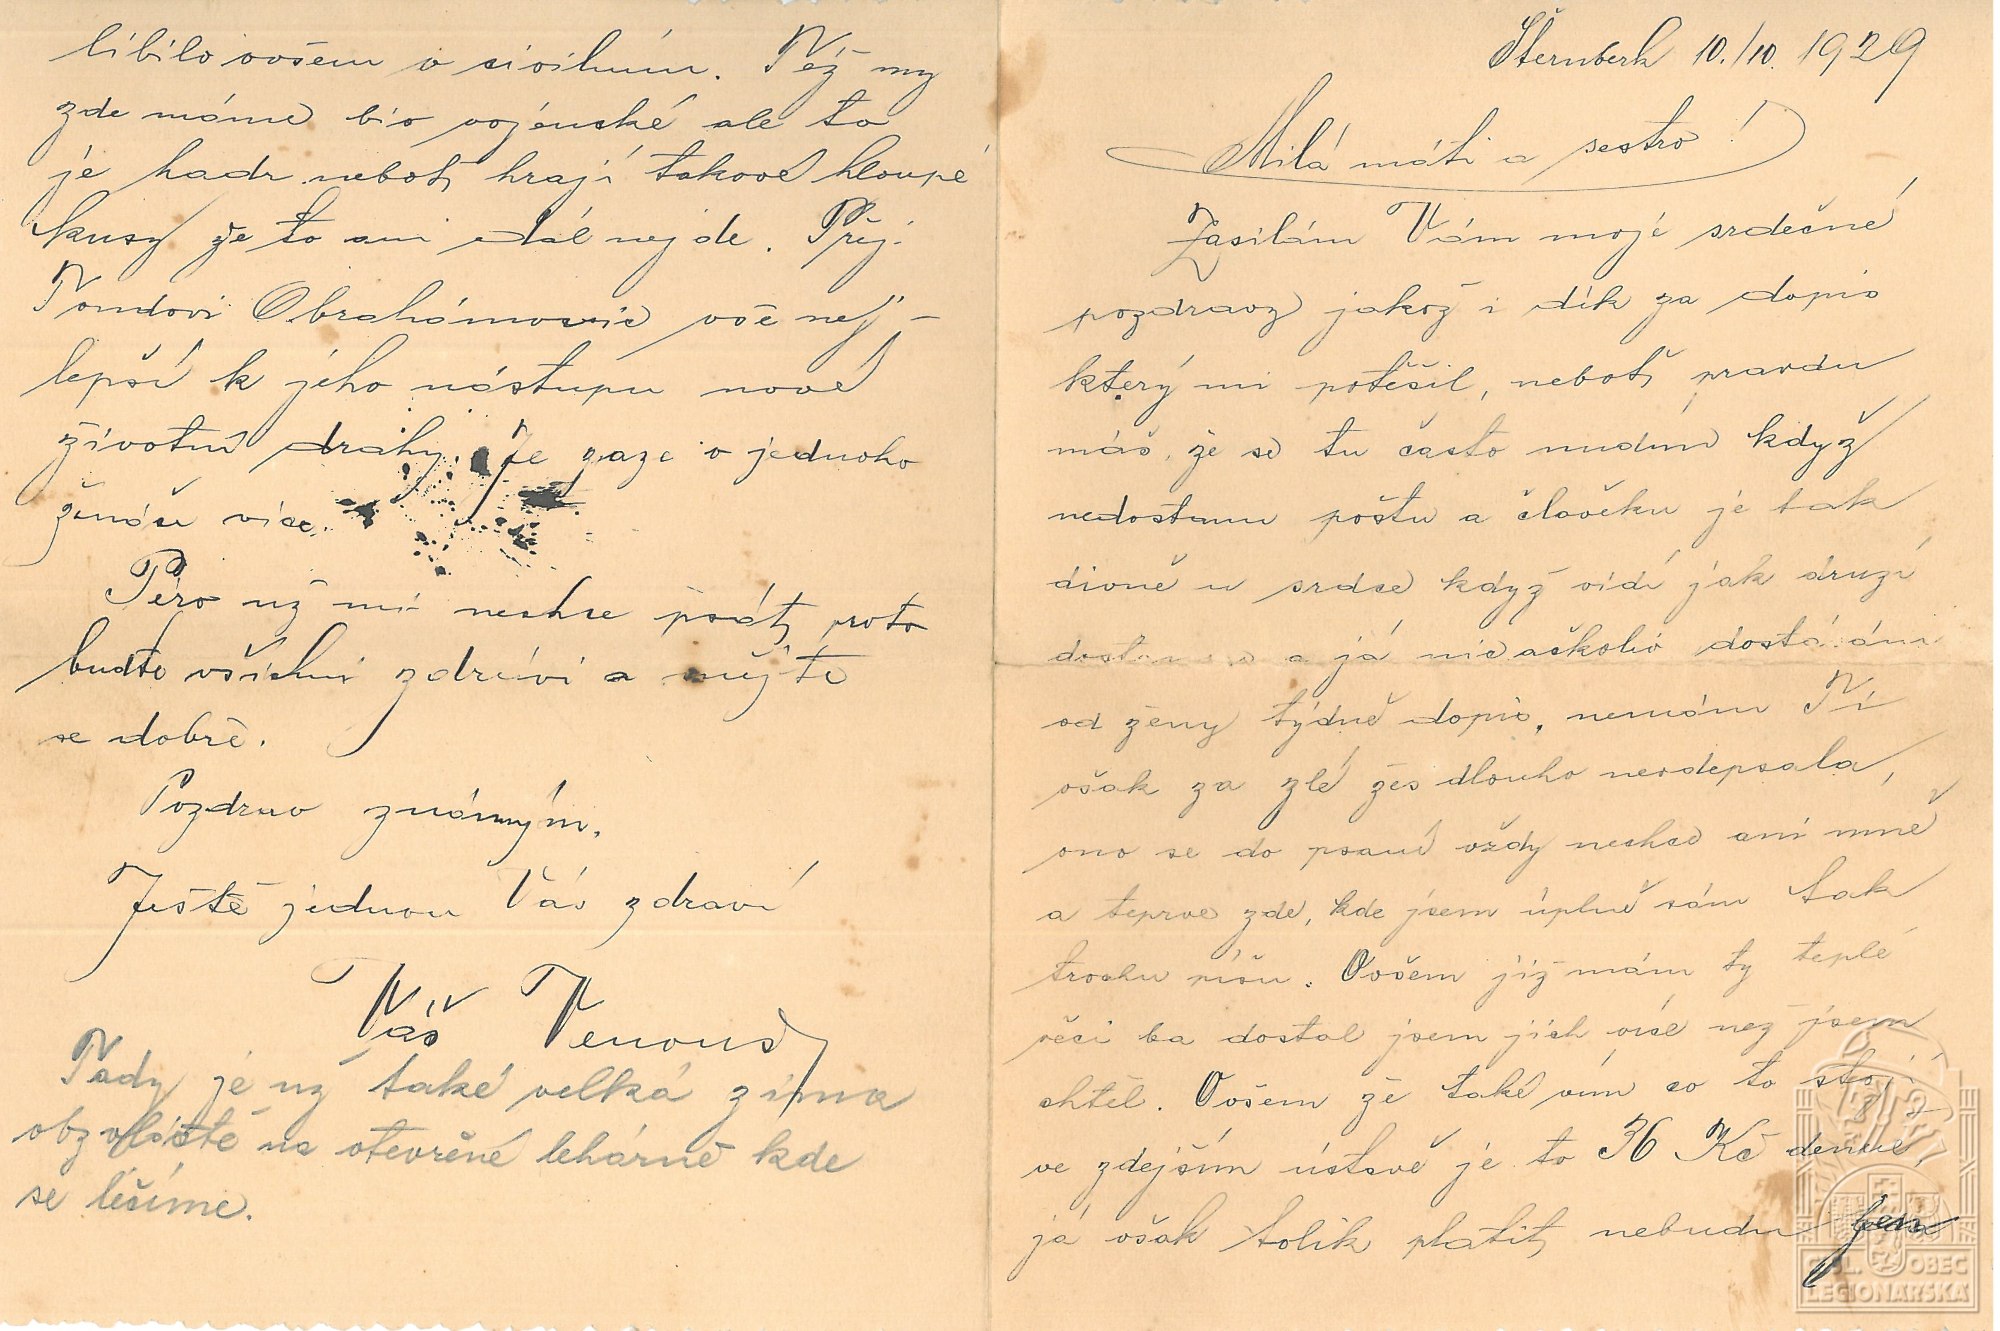 Šternberk 10./10. 1929
Milá máti a sestro!
Zasílám Vám mojé srdečné
pozdravy jakož i dík za dopis
který mi potěšil, neboť pravdu
máš, že se tu často nudím když
nedostanu poštu a člověku je tak
divně u srdce když vidí jak druzí
a já nic ačkoliv dostávám
od ženy týdně dopis, nemám Ti
však za zlé žes dlouho neodepsala,
ono se do psaní vždy nechce ani mně
a teprve zde, kde jsem úplně sám tak
trochu píšu. Ovšem již mám ty teplé
věci ba dostal jsem jich více než jsem
chtěl. Ovšem že také vím co to stojí
ve zdejším ústavě je to 36 Kč denně,
já však tolik platit nebudu jen
líbilo ovšem v civilním. Též my
zde máme bio vojenské ale to
je hadr neboť hrají takové hloupé
kusy že to ani dál nejde. Přej
Tondovi Obrahámovic vše nej-
lepší k jeho nástupu nové
životní dráhy. Je zaze o jednoho
ženáče více.
Péro už mi nechce psát, proto
buďte všichni zdrávi a mějte
se dobře.
Pozdrav známým.
Ještě jednou Vás zdraví
Váš Venouš
Tady je už také velká zima
obzvláště na otevřéné lehárně kde
se léčíme.
ČSL. OBEC
LEGIONÁŘSKÁ